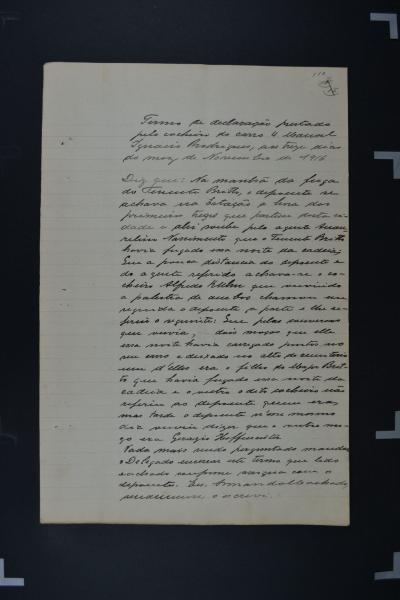 110
Termo de declaração prestado
pelo cocheiro do carro 4 Manoel
Ignacio Rodrigues, aos treze dias
do mez de Novembro de 1916
Diz que: Na manhã da fuga
do Tenente Britto, o depoente se
achava na Estação a hora dos
primeiros trens que partem desta ci-
dade e alli soube pelo agente
Nascimento que o Tenente Britto
havia fugado essa noite da cadeia;
Que a pouca distancia do depoente e
do agente referido achava-se o co-
cheiro Alfredo Kuhn que ouvindo
a palestra de ambos chamou em
seguida o depoente a parte e lhe re-
feriu o seguinte: Que pelas
que ouvia, dois moços que elle
essa noite havia carregado juntos no
seu carro e deixado no alto do cemiterio
um d'elles era o filho do Major Brit-
to que havia fugado essa noite da
cadeia e o outro o dito cocheiro não
referiu ao depoente quem era,
mas tarde o depoente n'esse mesmo
dia ouviu dizer que o outro mo-
ço era Hoffmeister
Nada mais sendo perguntado mandou
o Delegado encerrar este termo que lido
e achado conforme assigna com o
depoente. Eu, Armando Machado,
o escrevi.